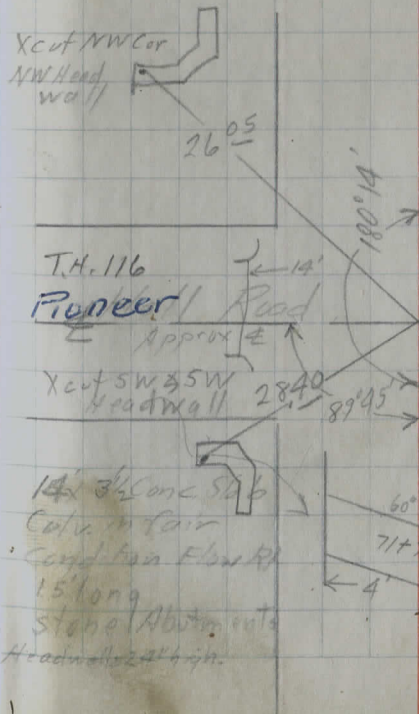 Xcut NW Cor
NW Head
wall
26 05
180° 14'
T.H. 116
14'
Pioneer Road
Approx ℄
Xcut SW & SW
Headwall
28 40
89° 45'
14 x 3½ Conc Slab
Culv. in fair
Condition Flow Rt
15' long
Stone Abutments
Headwalls 24" high.
60°
71+
4'